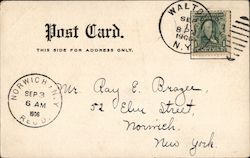 Post Card.
THIS SIDE FOR ADDRESS ONLY.
WALT
SEP
8
190
N.Y.
NORWICH, N.Y.
SEP 3
6 AM
1906
REC'D.
Mr. Ray E. Brazee,
52 Elm Street,
Norwich,
New York.